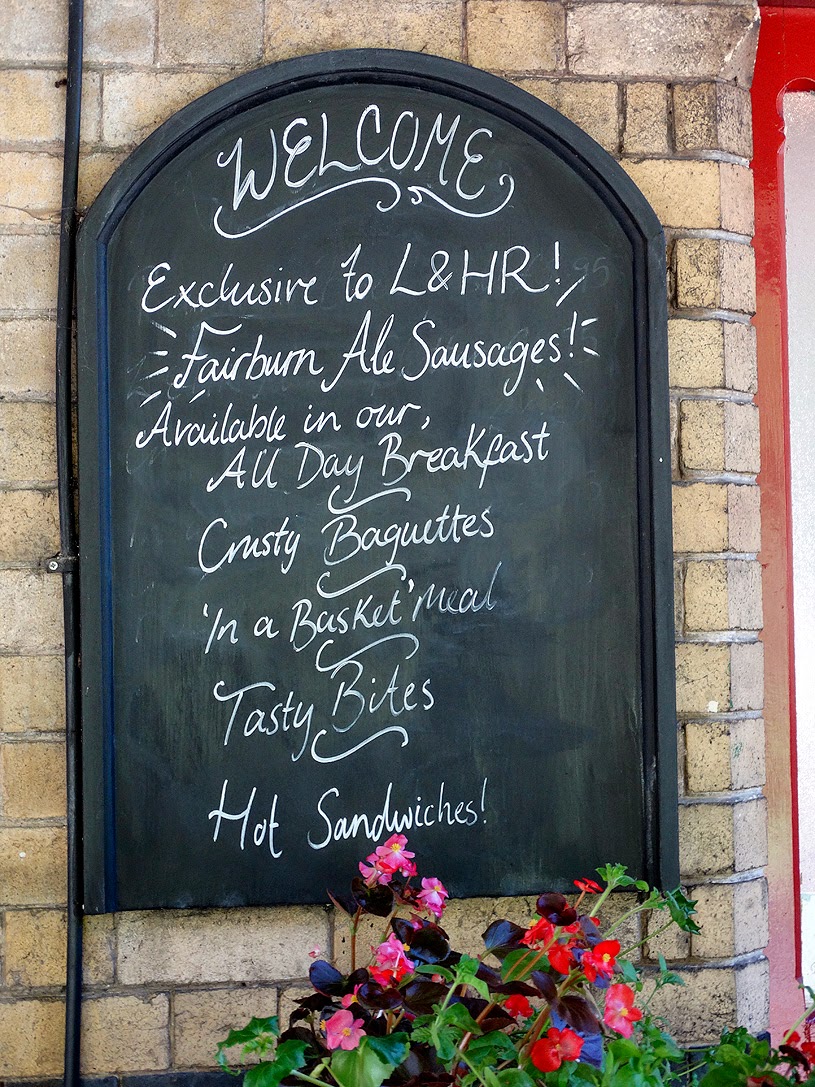 WELCOME
Exclusive to L&HR!
Fairburn Ale Sausages!
Available in our,
All Day Breakfast
Crusty Baguettes
'In a Basket' Meal
Tasty Bites
Hot Sandwiches!